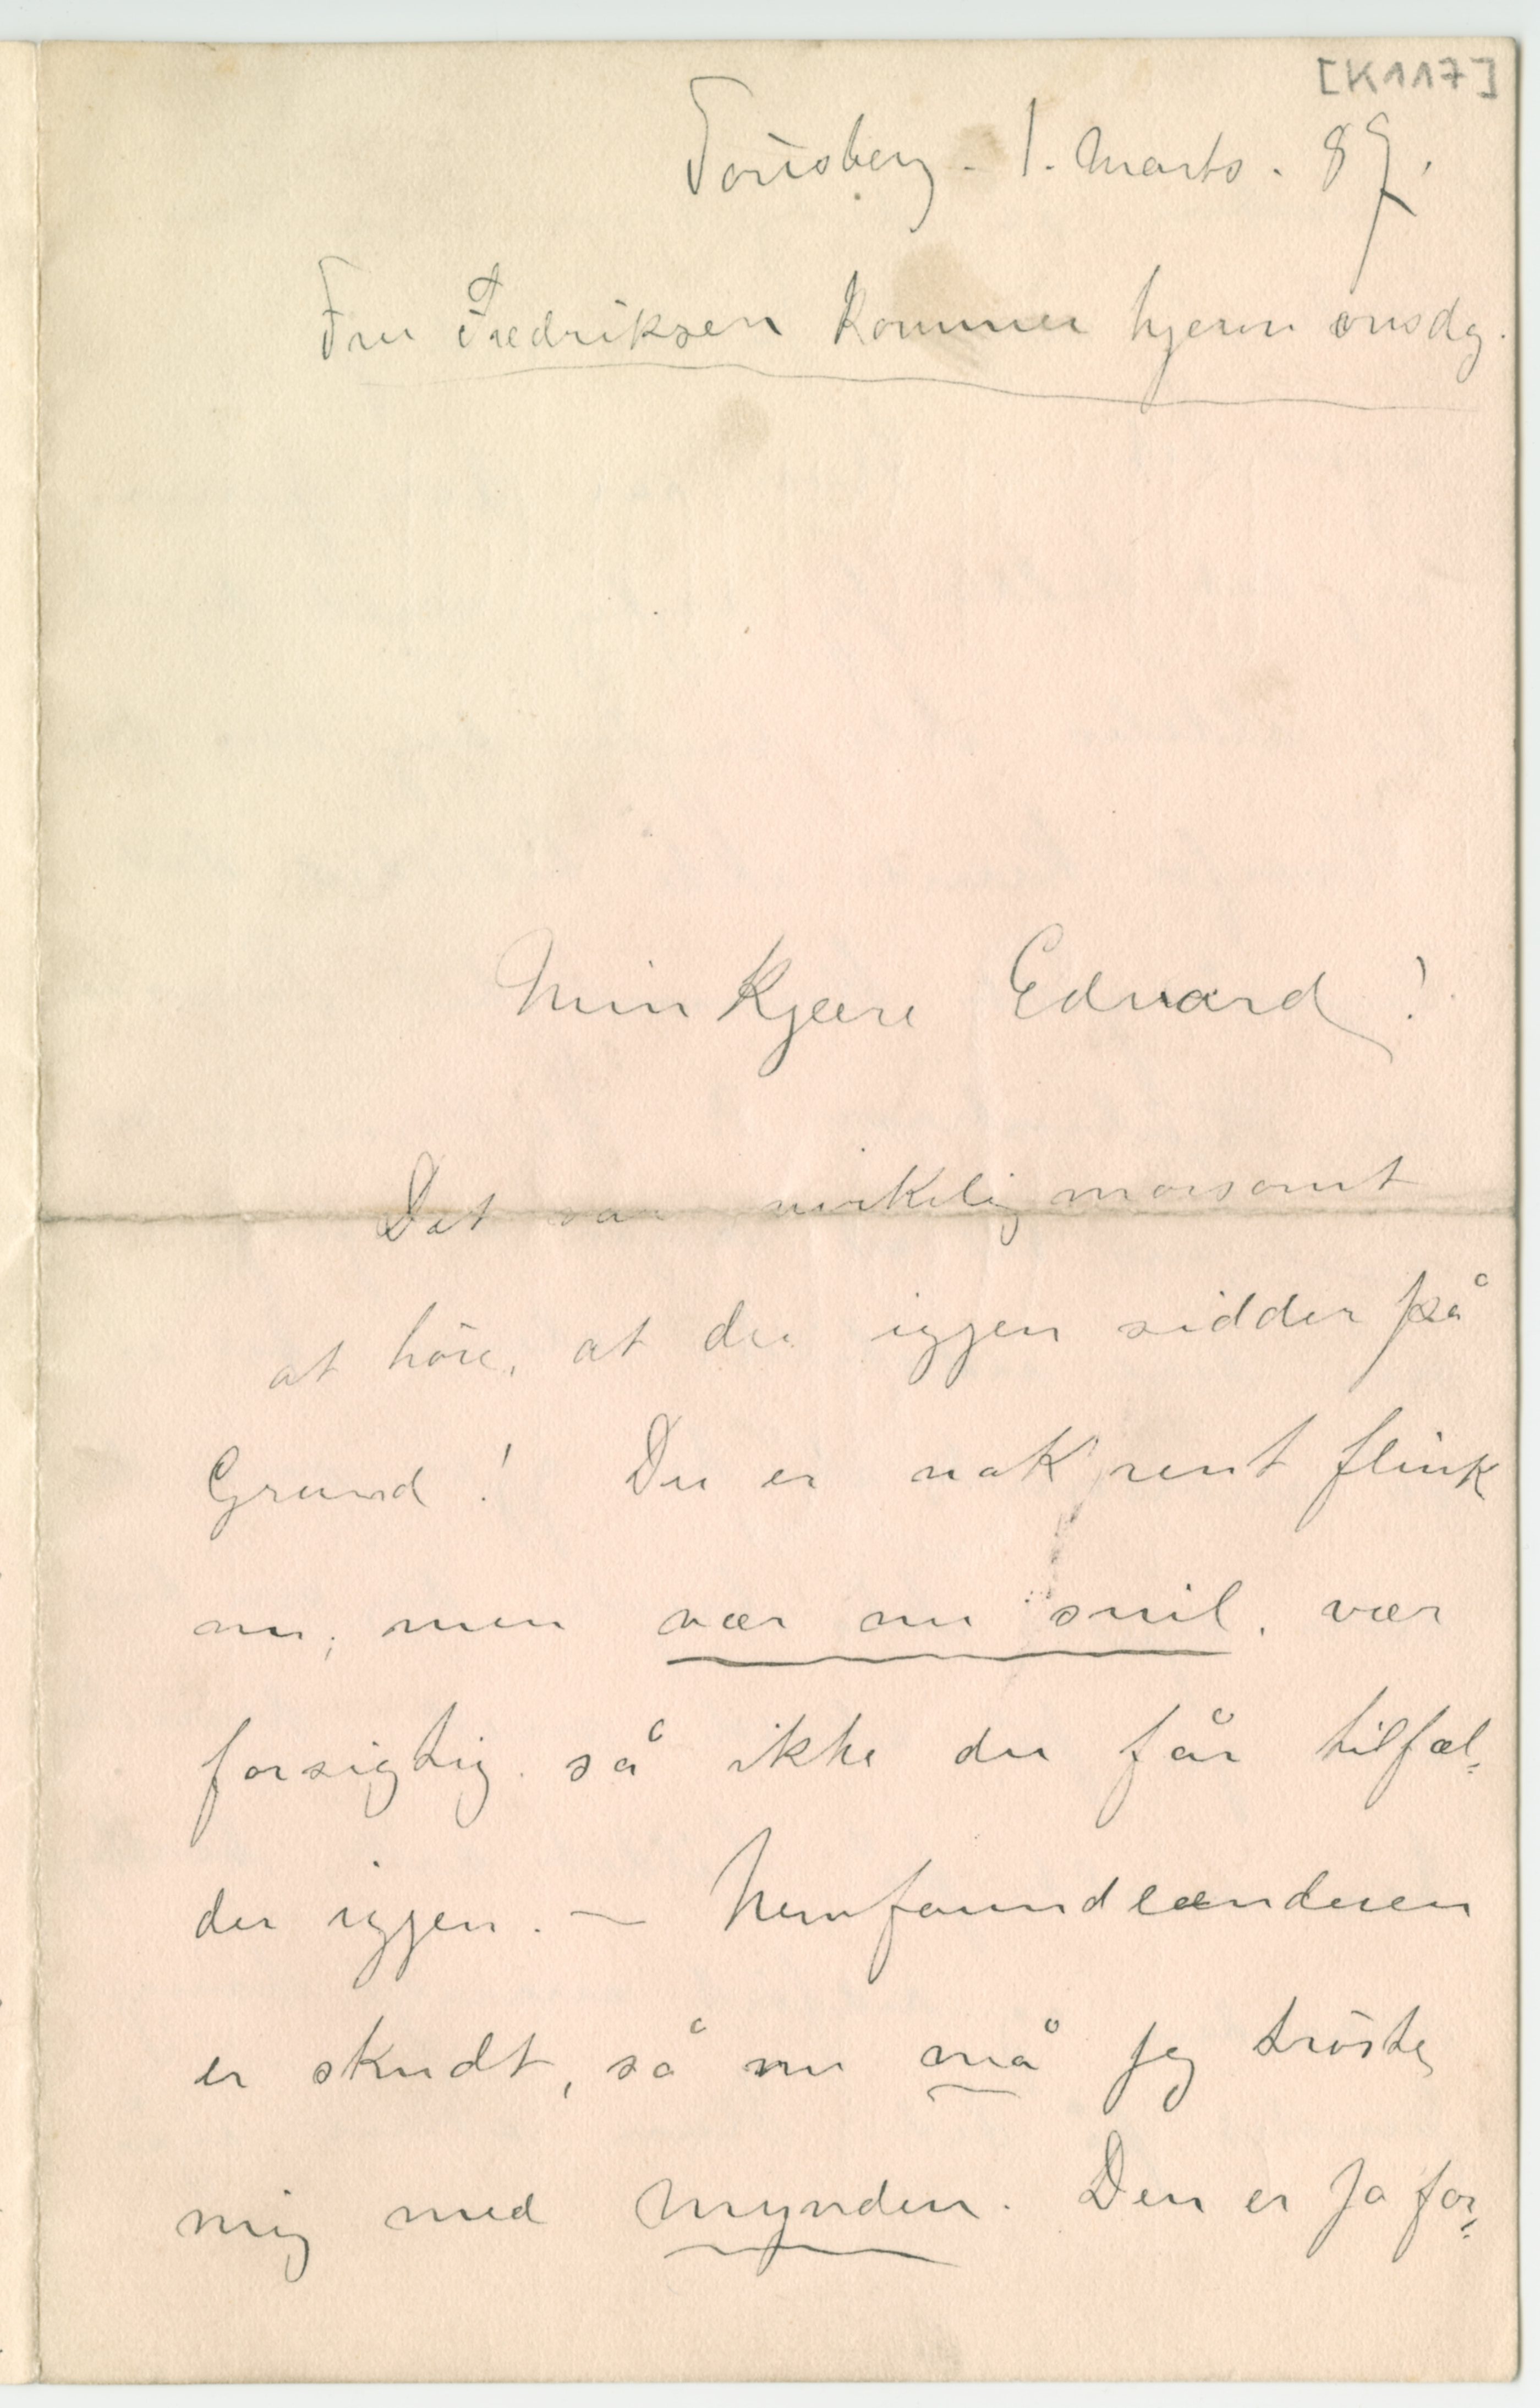 [K117]
Tönsberg. 1. Marts. 87.
Fru Fredriksen kommer hjem onsdg.
Min kjære Edvard!
Det var virkelig morsomt
at höre, at du iggjen sidder på
Grund! Du er nok rent flink
nu; men vær nu snil, vær
forsigtig så ikke du får tilfæl=
der iggjen. — Newfoundlænderen
er skudt, så nu må jeg tröste
mig med Mynden. Den er jo for=